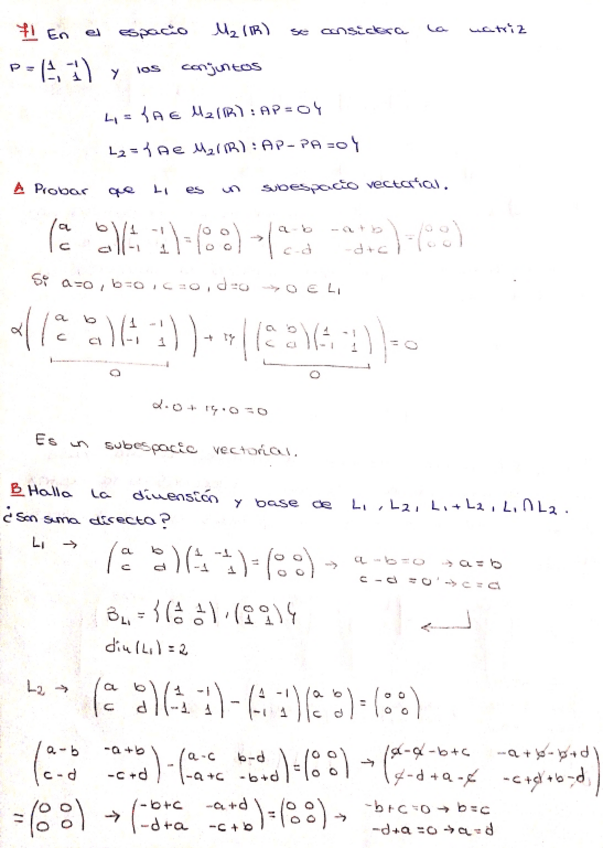 71 En el espacio M₂(ℝ) se considera la matriz
P = (1 -1; -1 1) y los conjuntos
L₁ = {A ∈ M₂(ℝ) : AP = 0}
L₂ = {A ∈ M₂(ℝ) : AP - PA = 0}
A Probar que L₁ es un subespacio vectorial.
(a b; c d)(1 -1; -1 1) = (0 0; 0 0) → (a-b -a+b; c-d -d+c) = (0 0; 0 0)
Si a=0, b=0, c=0, d=0 → 0 ∈ L₁
α((a b; c d)(1 -1; -1 1)) + ((a b; c d)(1 -1; -1 1)) = 0
0 0
α·0 + ·0 = 0
Es un subespacio vectorial.
B Halla la dimensión y base de L₁, L₂, L₁+L₂, L₁∩L₂.
¿Son suma directa?
L₁ → (a b; c d)(1 -1; -1 1) = (0 0; 0 0) → a-b=0 → a=b
c-d=0 → c=d
B_L₁ = {(1 1; 0 0), (0 0; 1 1)}
dim(L₁) = 2
L₂ → (a b; c d)(1 -1; -1 1) - (1 -1; -1 1)(a b; c d) = (0 0; 0 0)
(a-b -a+b; c-d -c+d) - (a-c b-d; -a+c -b+d) = (0 0; 0 0) → (a-a-b+c -a+b-b+d; c-d+a-c -c+d+b-d)
= (0 0; 0 0) → (-b+c -a+d; -d+a -c+b) = (0 0; 0 0) → -b+c=0 → b=c
-d+a=0 → a=d